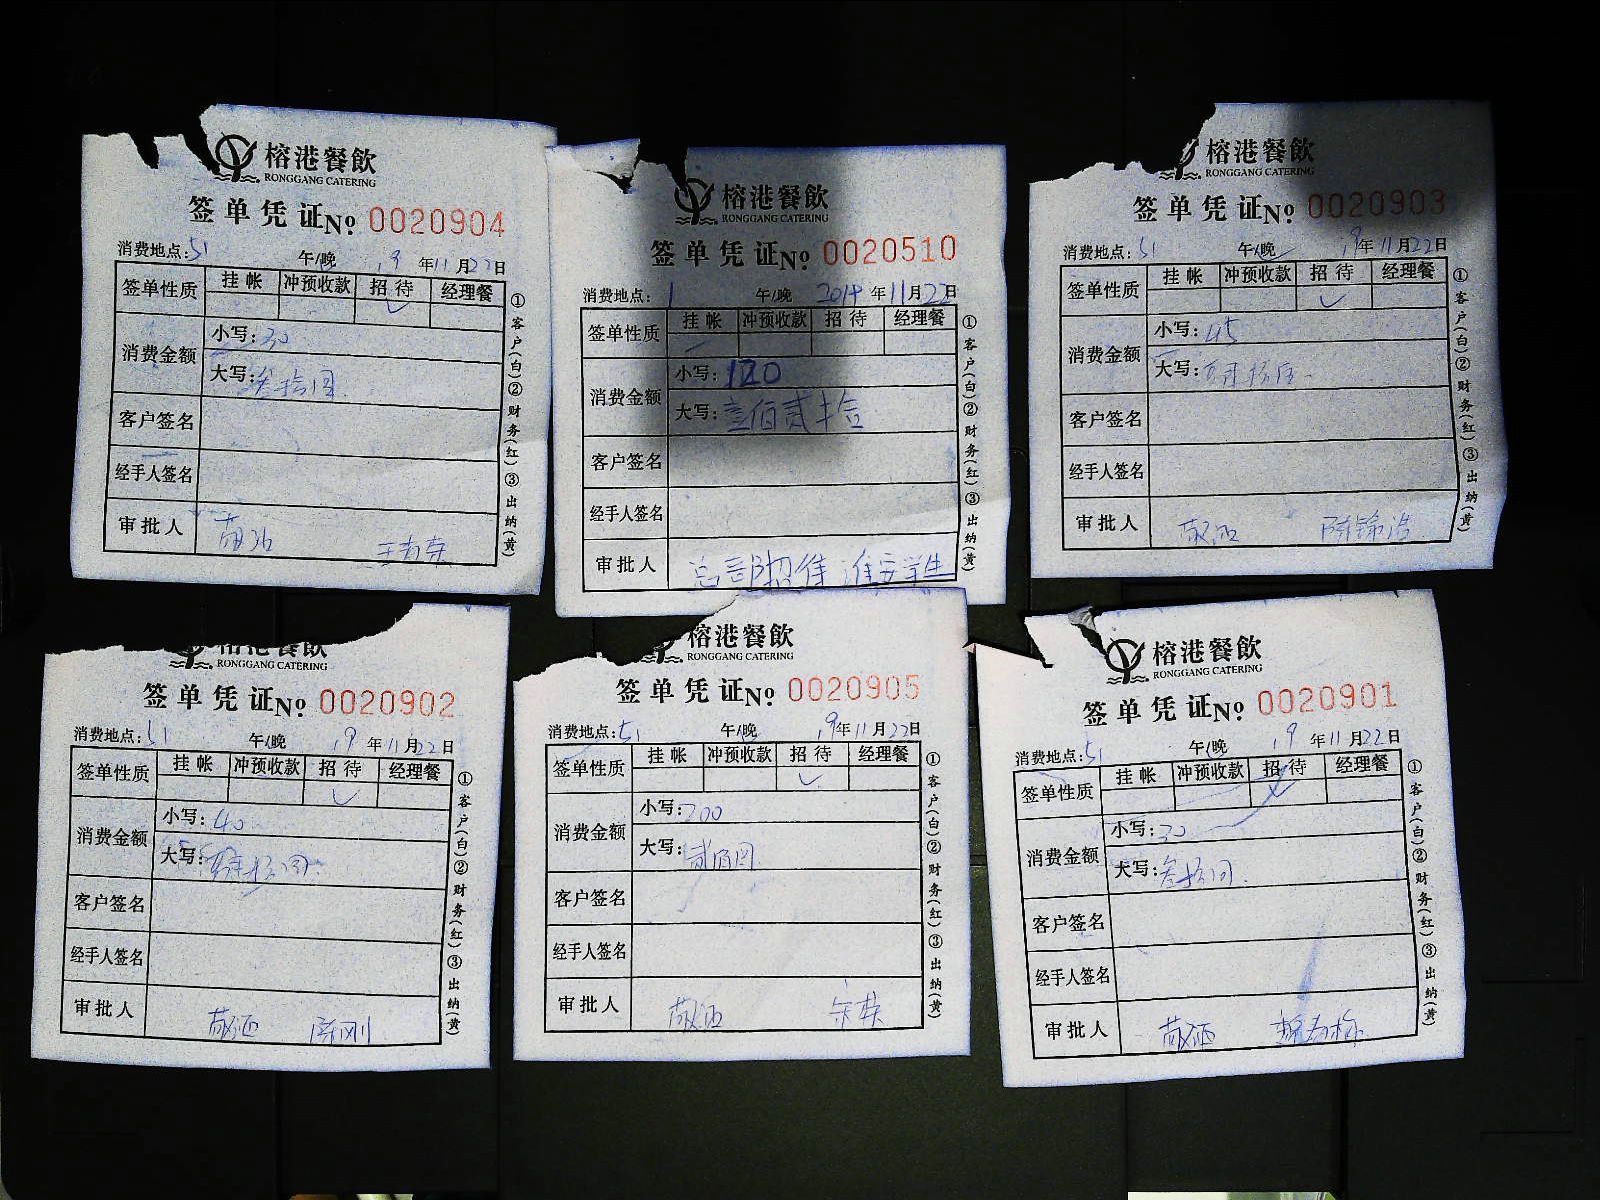 榕港餐飲
RONGGANG CATERING
签单凭证№ 0020904
消费地点: 51 午/晚 19年11月22日
签单性质 挂帐 冲预收款 招待 经理餐
消费金额
小写: 30
大写: 叁拾圆
客户签名
经手人签名
审批人
①客户(白)②财务(红)③出纳(黄)
榕港餐飲
RONGGANG CATERING
签单凭证№ 0020510
消费地点: 1 午/晚 2019年11月22日
签单性质 挂帐 冲预收款 招待 经理餐
消费金额
小写: 120
大写: 壹佰贰拾
客户签名
经手人签名
审批人 总部招待 淮安学生
①客户(白)②财务(红)③出纳(黄)
榕港餐飲
RONGGANG CATERING
签单凭证№ 0020903
消费地点: 51 午/晚 19年11月22日
签单性质 挂帐 冲预收款 招待 经理餐
消费金额
小写: 45
大写: 肆拾伍
客户签名
经手人签名
审批人 陈锦浩
①客户(白)②财务(红)③出纳(黄)
榕港餐飲
RONGGANG CATERING
签单凭证№ 0020902
消费地点: 51 午/晚 19年11月22日
签单性质 挂帐 冲预收款 招待 经理餐
消费金额
小写: 40
大写: 肆拾圆
客户签名
经手人签名
审批人 陈刚
①客户(白)②财务(红)③出纳(黄)
榕港餐飲
RONGGANG CATERING
签单凭证№ 0020905
消费地点: 51 午/晚 19年11月22日
签单性质 挂帐 冲预收款 招待 经理餐
消费金额
小写: 200
大写: 贰佰圆
客户签名
经手人签名
审批人
①客户(白)②财务(红)③出纳(黄)
榕港餐飲
RONGGANG CATERING
签单凭证№ 0020901
消费地点: 51 午/晚 19年11月22日
签单性质 挂帐 冲预收款 招待 经理餐
消费金额
小写: 30
大写: 叁拾圆
客户签名
经手人签名
审批人
①客户(白)②财务(红)③出纳(黄)